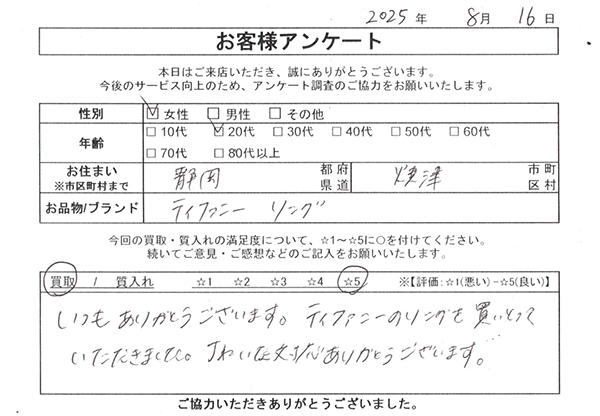 2025年 8月 16日
お客様アンケート
本日はご来店いただき、誠にありがとうございます。
今後のサービス向上のため、アンケート調査のご協力をお願いいたします。
性別 ☑女性 □男性 □その他
年齢 □10代 ☑20代 □30代 □40代 □50代 □60代
□70代 □80代以上
お住まい ※市区町村まで 静岡 都府県道 焼津 市町区村
お品物/ブランド ティファニー リング
今回の買取・質入れの満足度について、☆1~☆5に○を付けてください。
続いてご意見・ご感想などのご記入をお願いいたします。
買取 / 質入れ ☆1 ☆2 ☆3 ☆4 ☆5 ※【評価:☆1(悪い)−☆5(良い)】
いつもありがとうございます。ティファニーのリングを買いとって
いただきました。ていねいな対応ありがとうございます。
ご協力いただきありがとうございました。